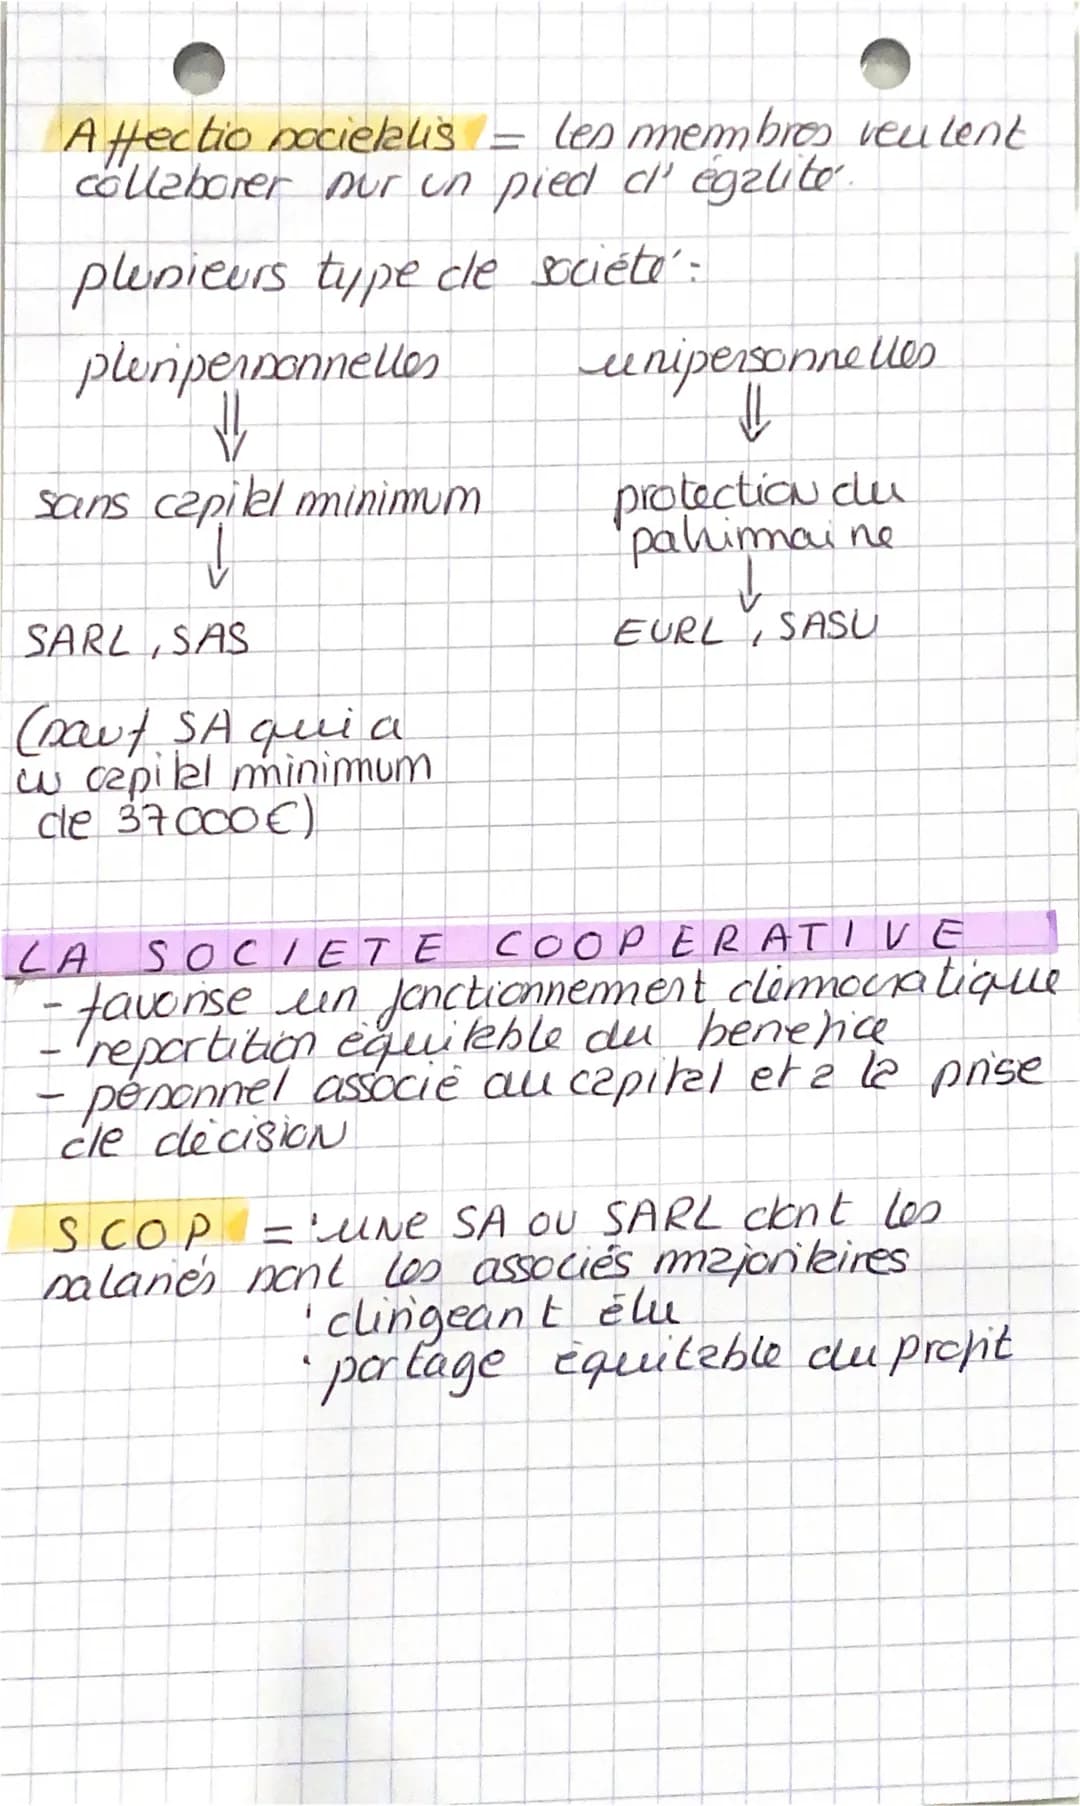 Affectio societalis = les membres veulent
collaborer sur un pied d'égalité.
plusieurs type de société :
pluripersonnelles unipersonnelles
sans capital minimum protection du
patrimoine
SARL, SAS EURL, SASU
(sauf SA qui a
un capital minimum
de 37000€)
LA SOCIETE COOPERATIVE
- favorise un fonctionnement démocratique
- repartition équitable du benefice
- personnel associé au capital et a la prise
de décision
SCOP = une SA ou SARL dont les
salariés sont les associés majoritaires
· dirigeant élu
· partage équitable du profit